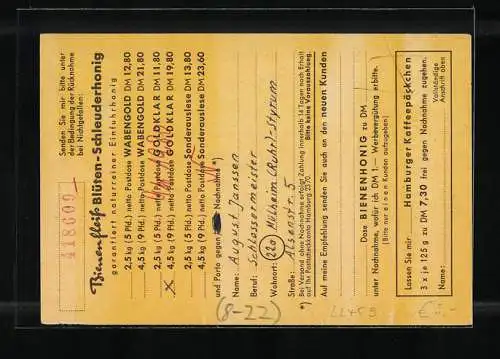 418609
Senden Sie mir bitte unter
der Bedingung der Rücknahme
bei Nichtgefallen:
Bienenfleiß Blüten-Schleuderhonig
garantiert naturreiner Einfuhrhonig
2,5 kg (5 Pfd.) netto Postdose WABENGOLD DM 12,80
4,5 kg (9 Pfd.) netto Postdose WABENGOLD DM 21,80
2,5 kg (5 Pfd.) netto Postdose GOLDKLAR DM 11,80
X 4,5 kg (9 Pfd.) netto Postdose GOLDKLAR DM 19,80
2,5 kg (5 Pfd.) netto Postdose Sonderauslese DM 13,80
4,5 kg (9 Pfd.) netto Postdose Sonderauslese DM 23,60
und Porto gegen Nachnahme *)
Name: August Janssen
Beruf: Schlossermeister
Wohnort: (22a) Mülheim (Ruhr)-Styrum
Straße: Alsenstr. 5
*) Bei Versand ohne Nachnahme erfolgt Zahlung innerhalb 14 Tagen nach Erhalt
auf Ihr Postscheckkonto Hamburg 2370. Bitte keine Vorauszahlung.
Auf meine Empfehlung senden Sie auch an den neuen Kunden
Dose BIENENHONIG zu DM
unter Nachnahme, wofür ich DM 1.— Werbevergütung erbitte.
(Bitte nur einen Kunden aufgeben)
Lassen Sie mir Hamburger Kaffeepäckchen
3 x je 125 g zu DM 7,30 frei gegen Nachnahme zugehen.
Name:
Vollständige
Anschrift oben
(8-22)